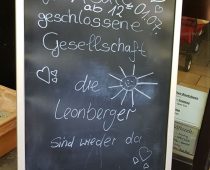 ab 12
geschlossene
Gesellschaft
die
Leonberger
sind wieder da